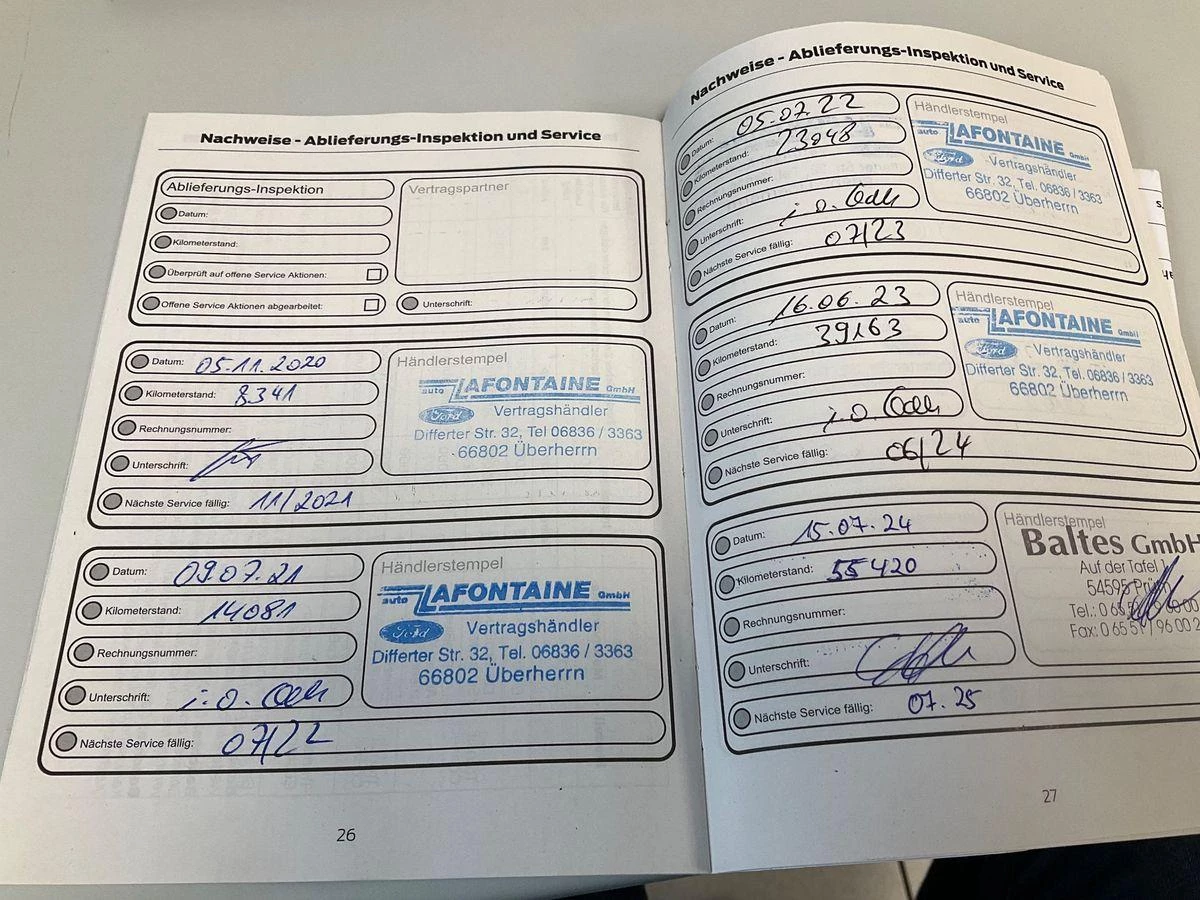 Nachweise - Ablieferungs-Inspektion und Service
Ablieferungs-Inspektion
Vertragspartner
Datum:
Kilometerstand:
Überprüft auf offene Service Aktionen:
Offene Service Aktionen abgearbeitet:
Unterschrift:
Datum: 05.11.2020
Kilometerstand: 8341
Rechnungsnummer:
Unterschrift:
Nächste Service fällig: 11/2021
Händlerstempel
auto LAFONTAINE GmbH
Ford Vertragshändler
Differter Str. 32, Tel 06836 / 3363
66802 Überherrn
Datum: 09.07.21
Kilometerstand: 14081
Rechnungsnummer:
Unterschrift: i.O.
Nächste Service fällig: 07/22
Händlerstempel
auto LAFONTAINE GmbH
Ford Vertragshändler
Differter Str. 32, Tel. 06836 / 3363
66802 Überherrn
26
Nachweise - Ablieferungs-Inspektion und Service
Datum: 05.07.22
Kilometerstand: 23048
Rechnungsnummer:
Unterschrift: i.O.
Nächste Service fällig: 07/23
Händlerstempel
auto LAFONTAINE GmbH
Ford Vertragshändler
Differter Str. 32, Tel. 06836 / 3363
66802 Überherrn
Datum: 16.06.23
Kilometerstand: 39163
Rechnungsnummer:
Unterschrift: i.O.
Nächste Service fällig: 06/24
Händlerstempel
auto LAFONTAINE GmbH
Ford Vertragshändler
Differter Str. 32, Tel. 06836 / 3363
66802 Überherrn
Datum: 15.07.24
Kilometerstand: 55420
Rechnungsnummer:
Unterschrift:
Nächste Service fällig: 07.25
Händlerstempel
Baltes GmbH
Auf der Tafel
54595 Prüm
Tel.: 0 65 51 / 9 60 00
Fax: 0 65 51 / 96 00 2
27